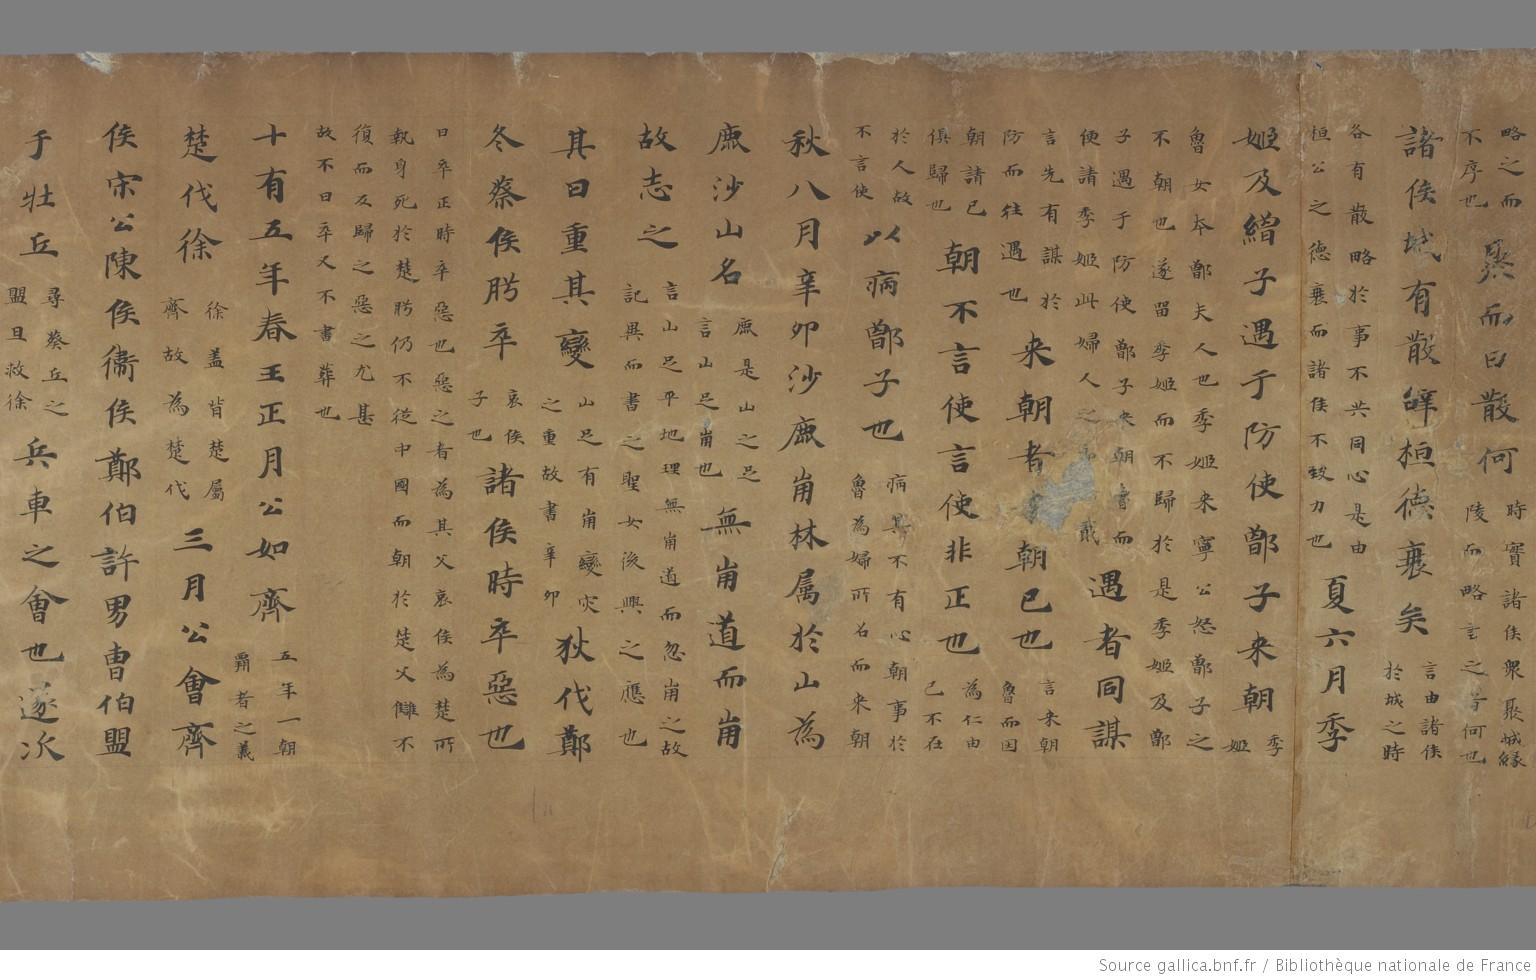 略之而不序也聚而曰散何時實諸侯眾聚城緣陵而略言之等何也
諸侯城有散辝桓德衰矣言由諸侯於城之時
各有散略於事不共同心是由桓公之德衰而諸侯不致力也夏六月季
姬及繒子遇于防使鄫子來朝季姬
魯女本鄫夫人也季姬來寧公怒鄫子之不朝也遂留季姬而不歸於是季姬及鄫
子遇于防使鄫子來朝會而便請季姬此婦人之貳遇者同謀
言先有謀於防而往遇也来朝者朝已也言来朝魯而因
朝請已俱歸也朝不言使言使非正也為仁由已不在
於人故不言使以病鄫子也病其不有心朝事於魯為婦所名而来朝
秋八月辛卯沙鹿崩林属於山為
鹿沙山名鹿是山之足言山足崩也無崩道而崩
故志之言山足平地理無崩道而忽崩之故記異而書之聖女後興之應也
其日重其變山足有崩變灾之重故書辛卯狄伐鄭
冬蔡侯肹卒哀侯子也諸侯時卒惡也
日卒正時卒惡也惡之者為其父哀侯為楚所執身死於楚肹仍不從中國而朝於楚父讎不
復而反歸之惡之尤甚故不日卒又不書葬也
十有五年春王正月公如齊五年一朝霸者之義
楚伐徐徐盖背楚屬齊故為楚伐三月公會齊
侯宋公陳侯衛侯鄭伯許男曺伯盟
于牡丘尋葵丘之盟且救徐兵車之會也遂次
Source gallica.bnf.fr / Bibliothèque nationale de France